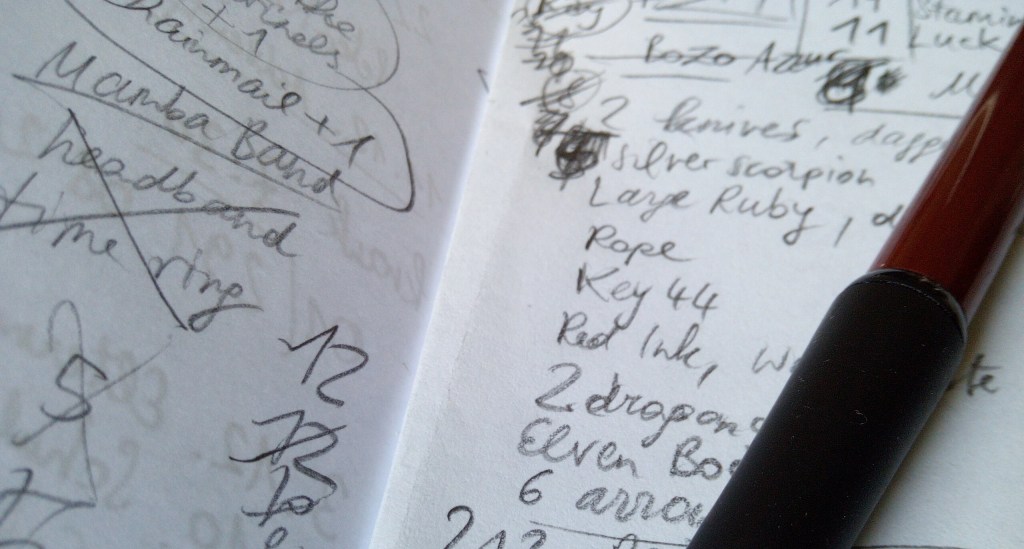 +1
Chainmail +1
Mamba Band
headband
time ring
5
12
11 Stamin
11 Luck
Bozo Azur
2 knives, dagg
silver scorpion
Large Ruby, d
Rope
Key 44
Red Ink, w
2 dragon
Elven Bo
6 arrow
212